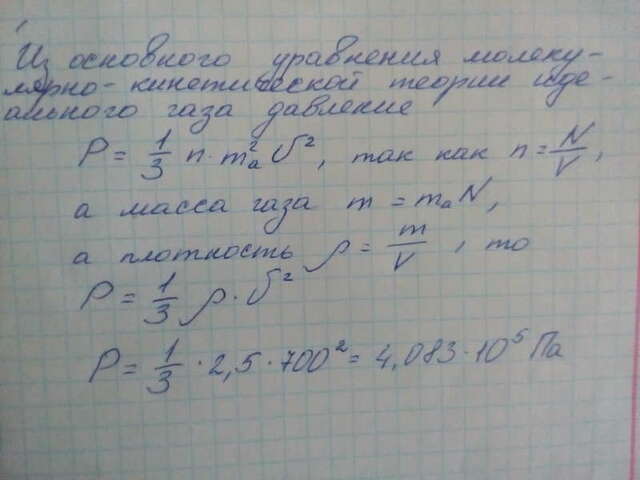 Из основного уравнения молеку-
лярно-кинетической теории иде-
ального газа давление
P = 1/3 n · mₐ² υ², так как n = N/V,
а масса газа m = mₐN,
а плотность ρ = m/V, то
P = 1/3 ρ · υ²
P = 1/3 · 2,5 · 700² = 4,083 · 10⁵ Па